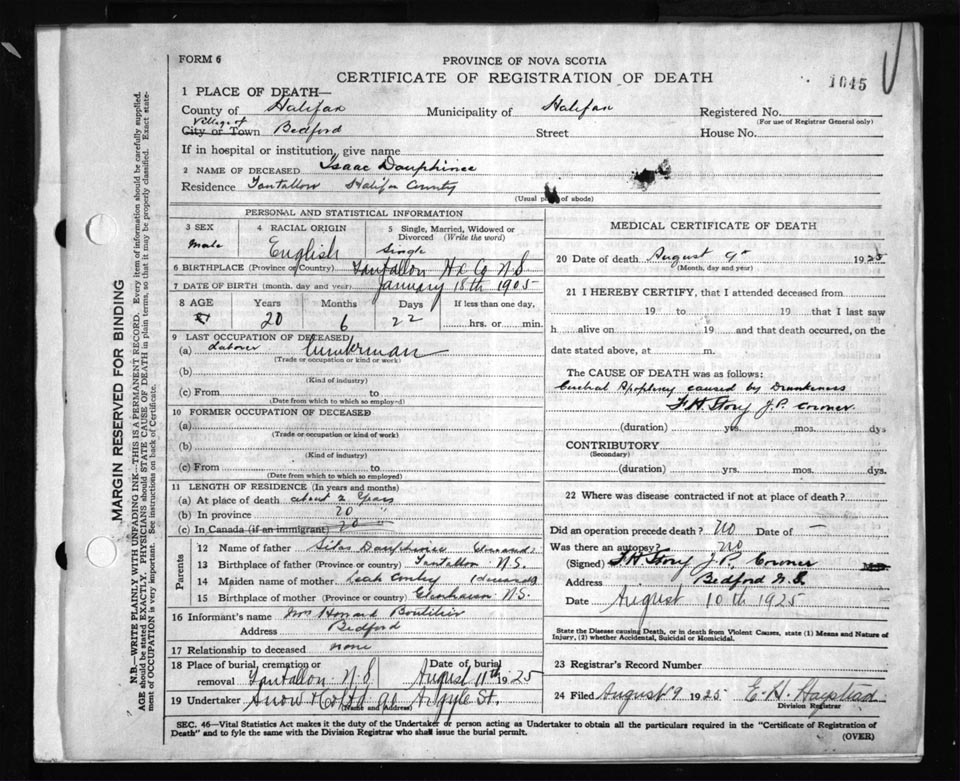 FORM 6
PROVINCE OF NOVA SCOTIA
CERTIFICATE OF REGISTRATION OF DEATH
1645
1 PLACE OF DEATH—
County of Halifax Municipality of Halifax Registered No.
(For use of Registrar General only)
Village of
City or Town Bedford Street House No.
If in hospital or institution, give name
2 NAME OF DECEASED Isaac Dauphinee
Residence Tantallon Halifax County
(Usual place of abode)
PERSONAL AND STATISTICAL INFORMATION
3 SEX
male
4 RACIAL ORIGIN
English
5 Single, Married, Widowed or Divorced (Write the word)
Single
6 BIRTHPLACE (Province or Country) Tantallon Hx Co N.S
7 DATE OF BIRTH (month, day and year) January 18th 1905
8 AGE Years Months Days If less than one day,
20 6 22 hrs. or min.
9 LAST OCCUPATION OF DECEASED
(a) Laborer Lumberman
(Trade or occupation or kind or work)
(b)
(Kind of industry)
(c) From to
(Date from which to which so employed)
10 FORMER OCCUPATION OF DECEASED
(a)
(Trade or occupation or kind of work)
(b)
(Kind of industry)
(c) From to
(Date from which to which so employed)
11 LENGTH OF RESIDENCE (In years and months)
(a) At place of death about 2 Years
(b) In province 20 "
(c) In Canada (if an immigrant) 20 "
Parents
12 Name of father Silas Dauphinee
13 Birthplace of father (Province or country) Tantallon N.S.
14 Maiden name of mother Leah (deceased)
15 Birthplace of mother (Province or country) N.S.
16 Informant's name Mrs Howard Boutilier
Address Bedford
17 Relationship to deceased none
18 Place of burial, cremation or removal Tantallon N.S
Date of burial August 11th 1925
19 Undertaker Snow & Co Ltd 90 Argyle St.
(Name and Address)
MEDICAL CERTIFICATE OF DEATH
20 Date of death August 9th 1925
(Month, day and year)
21 I HEREBY CERTIFY, that I attended deceased from
19 to 19 that I last saw
h alive on 19 and that death occurred, on the
date stated above, at m.
The CAUSE OF DEATH was as follows:
Apoplexy caused by Drunkeness
F.H. Story J.P. Coroner
(duration) yrs. mos. dys
CONTRIBUTORY
(Secondary)
(duration) yrs. mos. dys.
22 Where was disease contracted if not at place of death?
Did an operation precede death? No Date of —
Was there an autopsy? No
(Signed) F.H. Story J.P. Coroner
Address Bedford N.S.
Date August 10th 1925
State the Disease causing Death, or in death from Violent Causes, state (1) Means and Nature of Injury, (2) whether Accidental, Suicidal or Homicidal.
23 Registrar's Record Number
24 Filed August 9 1925 E. H.
Division Registrar
SEC. 46—Vital Statistics Act makes it the duty of the Undertaker or person acting as Undertaker to obtain all the particulars required in the "Certificate of Registration of
Death" and to fyle the same with the Division Registrar who shall issue the burial permit.
(OVER)
MARGIN RESERVED FOR BINDING
N.B.—WRITE PLAINLY WITH UNFADING INK—THIS IS A PERMANENT RECORD. Every item of information should be carefully supplied.
AGE should be stated EXACTLY. PHYSICIANS should STATE CAUSE OF DEATH in plain terms, so that it may be properly classified. Exact statement
of OCCUPATION is very important. See instructions on back of Certificate.